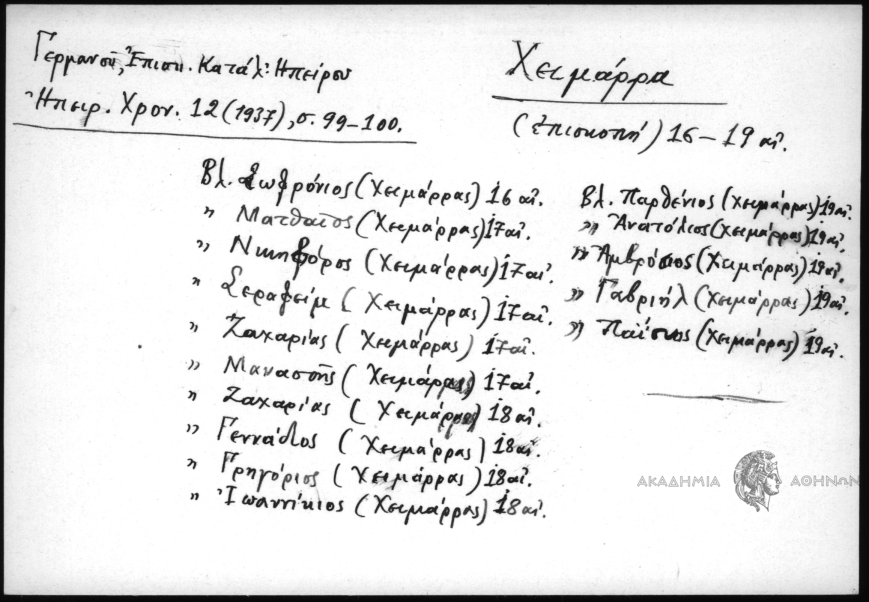 Γερμανοῦ, Ἐπισκ. Κατάλ. Ἠπείρου
Ἠπειρ. Χρον. 12 (1937), σ. 99-100.
Χειμάρρα
(ἐπισκοπή) 16-19 αἰ.
Βλ. Σωφρόνιος (Χειμάρρας) 16 αἰ.
" Ματθαῖος (Χειμάρρας) 17 αἰ.
" Νικηφόρος (Χειμάρρας) 17 αἰ.
" Σεραφείμ (Χειμάρρας) 17 αἰ.
" Ζαχαρίας (Χειμάρρας) 17 αἰ.
" Μανασσῆς (Χειμάρρας) 17 αἰ.
" Ζαχαρίας (Χειμάρρας) 18 αἰ.
" Γεννάδιος (Χειμάρρας) 18 αἰ.
" Γρηγόριος (Χειμάρρας) 18 αἰ.
" Ἰωαννίκιος (Χειμάρρας) 18 αἰ.
Βλ. Παρθένιος (Χειμάρρας) 19 αἰ.
" Ἀνατόλιος (Χειμάρρας) 19 αἰ.
" Ἀμβρόσιος (Χειμάρρας) 19 αἰ.
" Γαβριήλ (Χειμάρρας) 19 αἰ.
" Παΐσιος (Χειμάρρας) 19 αἰ.
ΑΚΑΔΗΜΙΑ ΑΘΗΝΩΝ